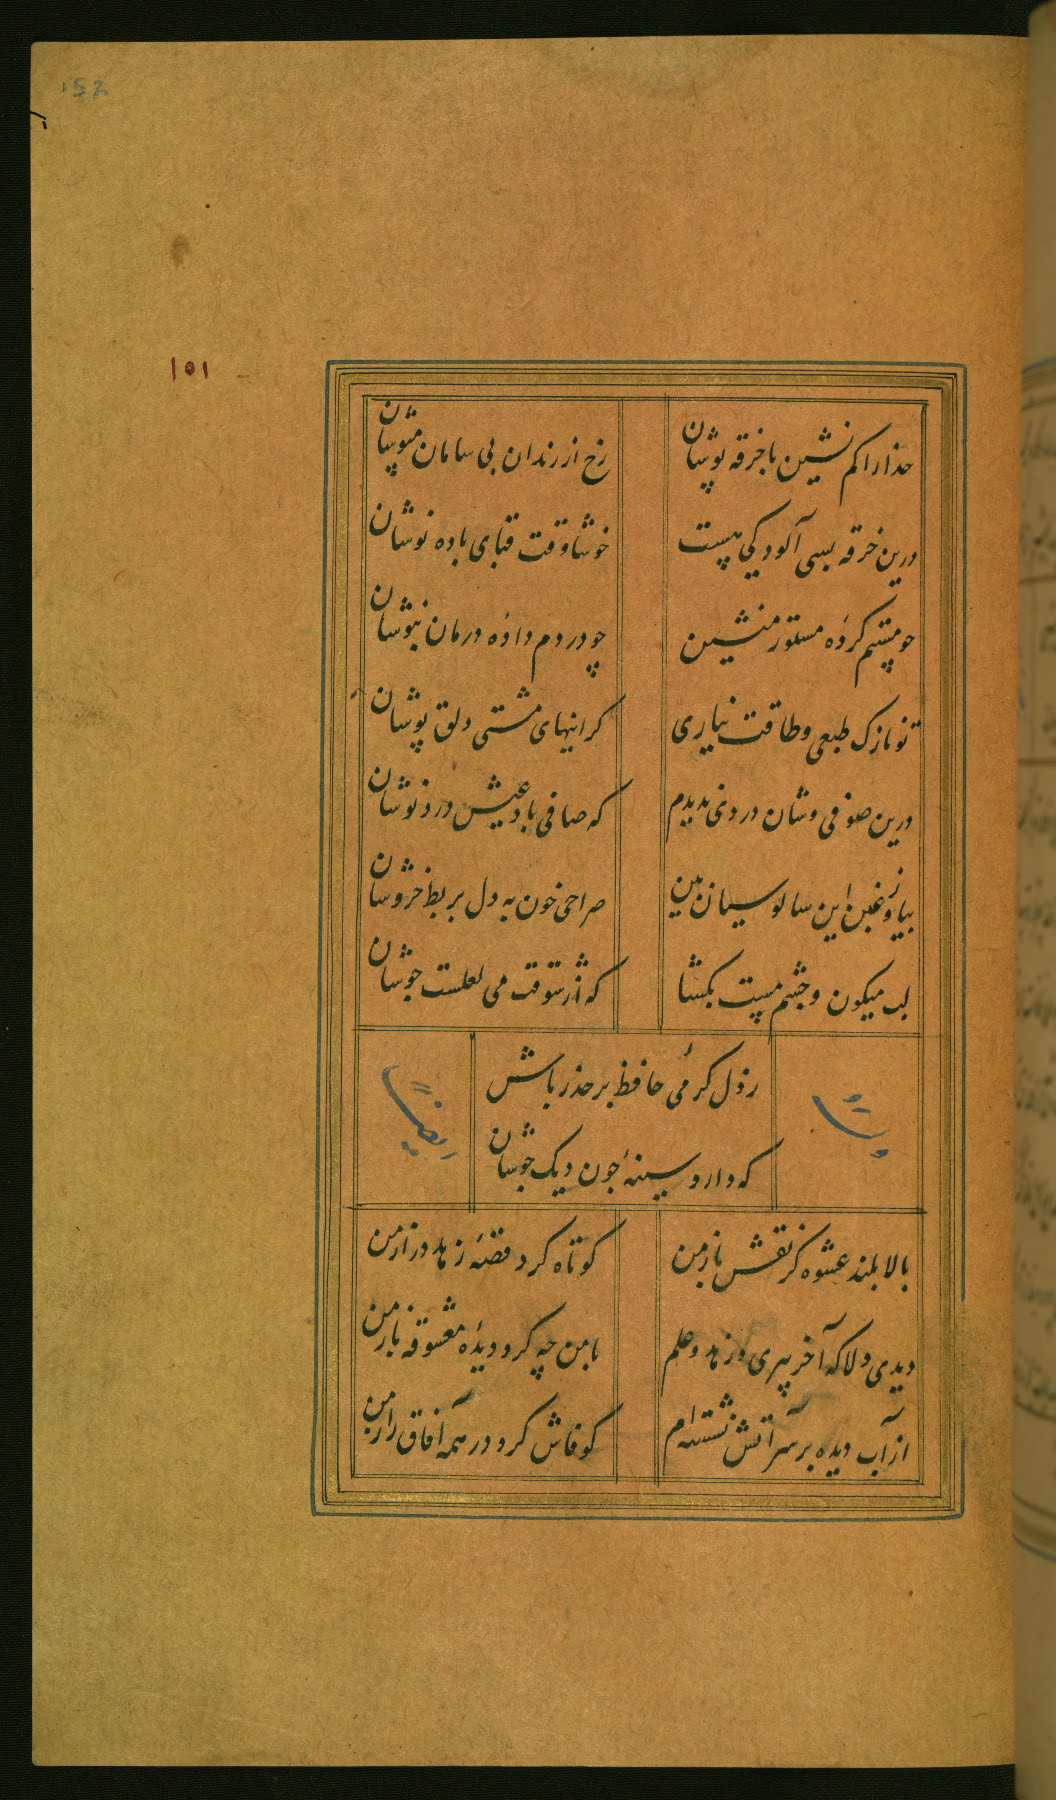 152
۱۵۱
خدارا کم نشین با خرقه پوشان
رخ از رندان بی سامان مپوشان
درین خرقه بسی آلودگی هست
خوشا وقت قبای باده نوشان
چو مستم کردۀ مستور منشین
چو دردم دادۀ درمان نیوشان
تو نازک طبعی و طاقت نیاری
گرانیهای مشتی دلق پوشان
درین صوفی وشان دردی ندیدم
که صافی باد عیش درد نوشان
بیا وز غبن این سالوسیان بین
صراحی خون به دل بربط خروشان
لب میگون و چشم مست بگشا
که از شوقت می لعلست جوشان
ز دل گرمی حافظ بر حذر باش
که دارد سینۀ چون دیگ جوشان
وله
ایضا
بالا بلند عشوه گر نقش باز من
کوتاه کرد قصۀ زهد دراز من
دیدی دلا که آخر پیری و زهد و علم
با من چه کرد دیدۀ معشوقه باز من
از آب دیده بر سر آتش نشسته ام
کو فاش کرد در همه آفاق راز من